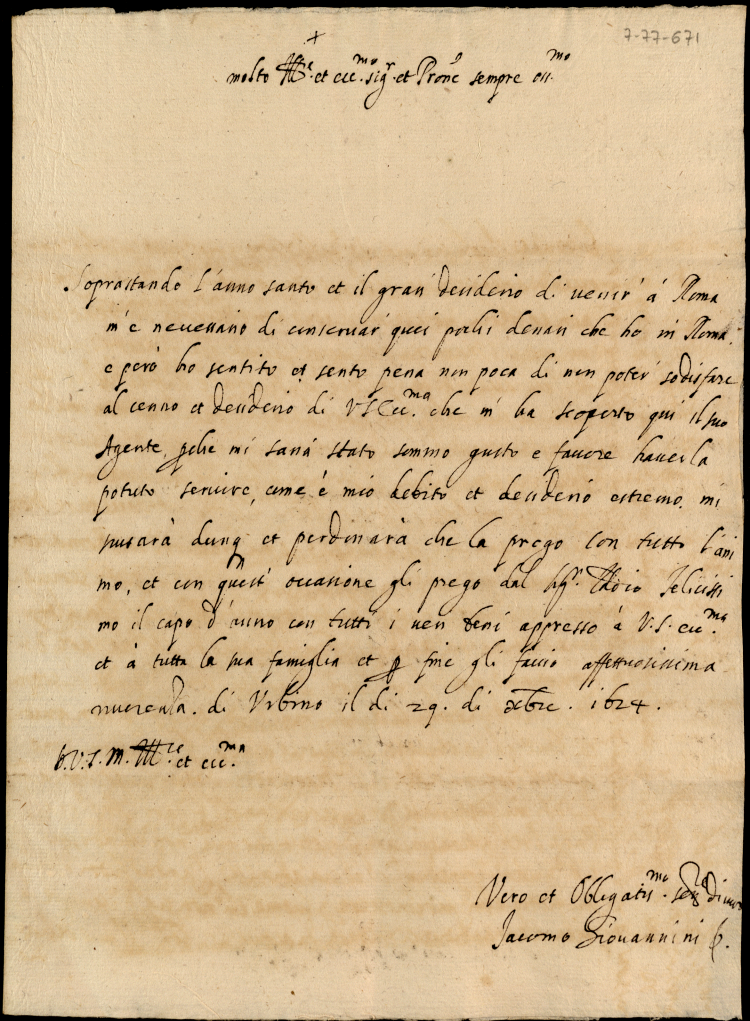 7-77-671
+
molto Ill.re et ecc.mo sig.r et Prone sempre oss.mo
Soprastando l'anno santo et il gran desiderio di venir' á Roma
m'e necessario di conservar' quei pochi denari che ho in Roma,
e peró ho sentito et sento pena non poca di non poter' sodisfare
al cenno et desiderio di V S Ecc.ma che m' ha scoperto qui il suo
Agente, pche mi sariá stato sommo gusto e favore haverla
potuto servire, come é mio debito et desiderio estremo, mi
scusará dunq et perdonará che la prego con tutto l'ani
mo, et con quest' occasione gli prego dal Sig.r Iddio felicissi
mo il capo d'anno con tutti i veri beni appresso á V.S. ecc.ma
et á tutta la sua famiglia et p fine gli faccio affettuosissima
riverenza. di Urbino il di 29. di Xbre. 1624.
D.V.S.M. Ill.re et ecc.ma
Vero et Obligatis.mo ser.re di
Jacomo Giovannini